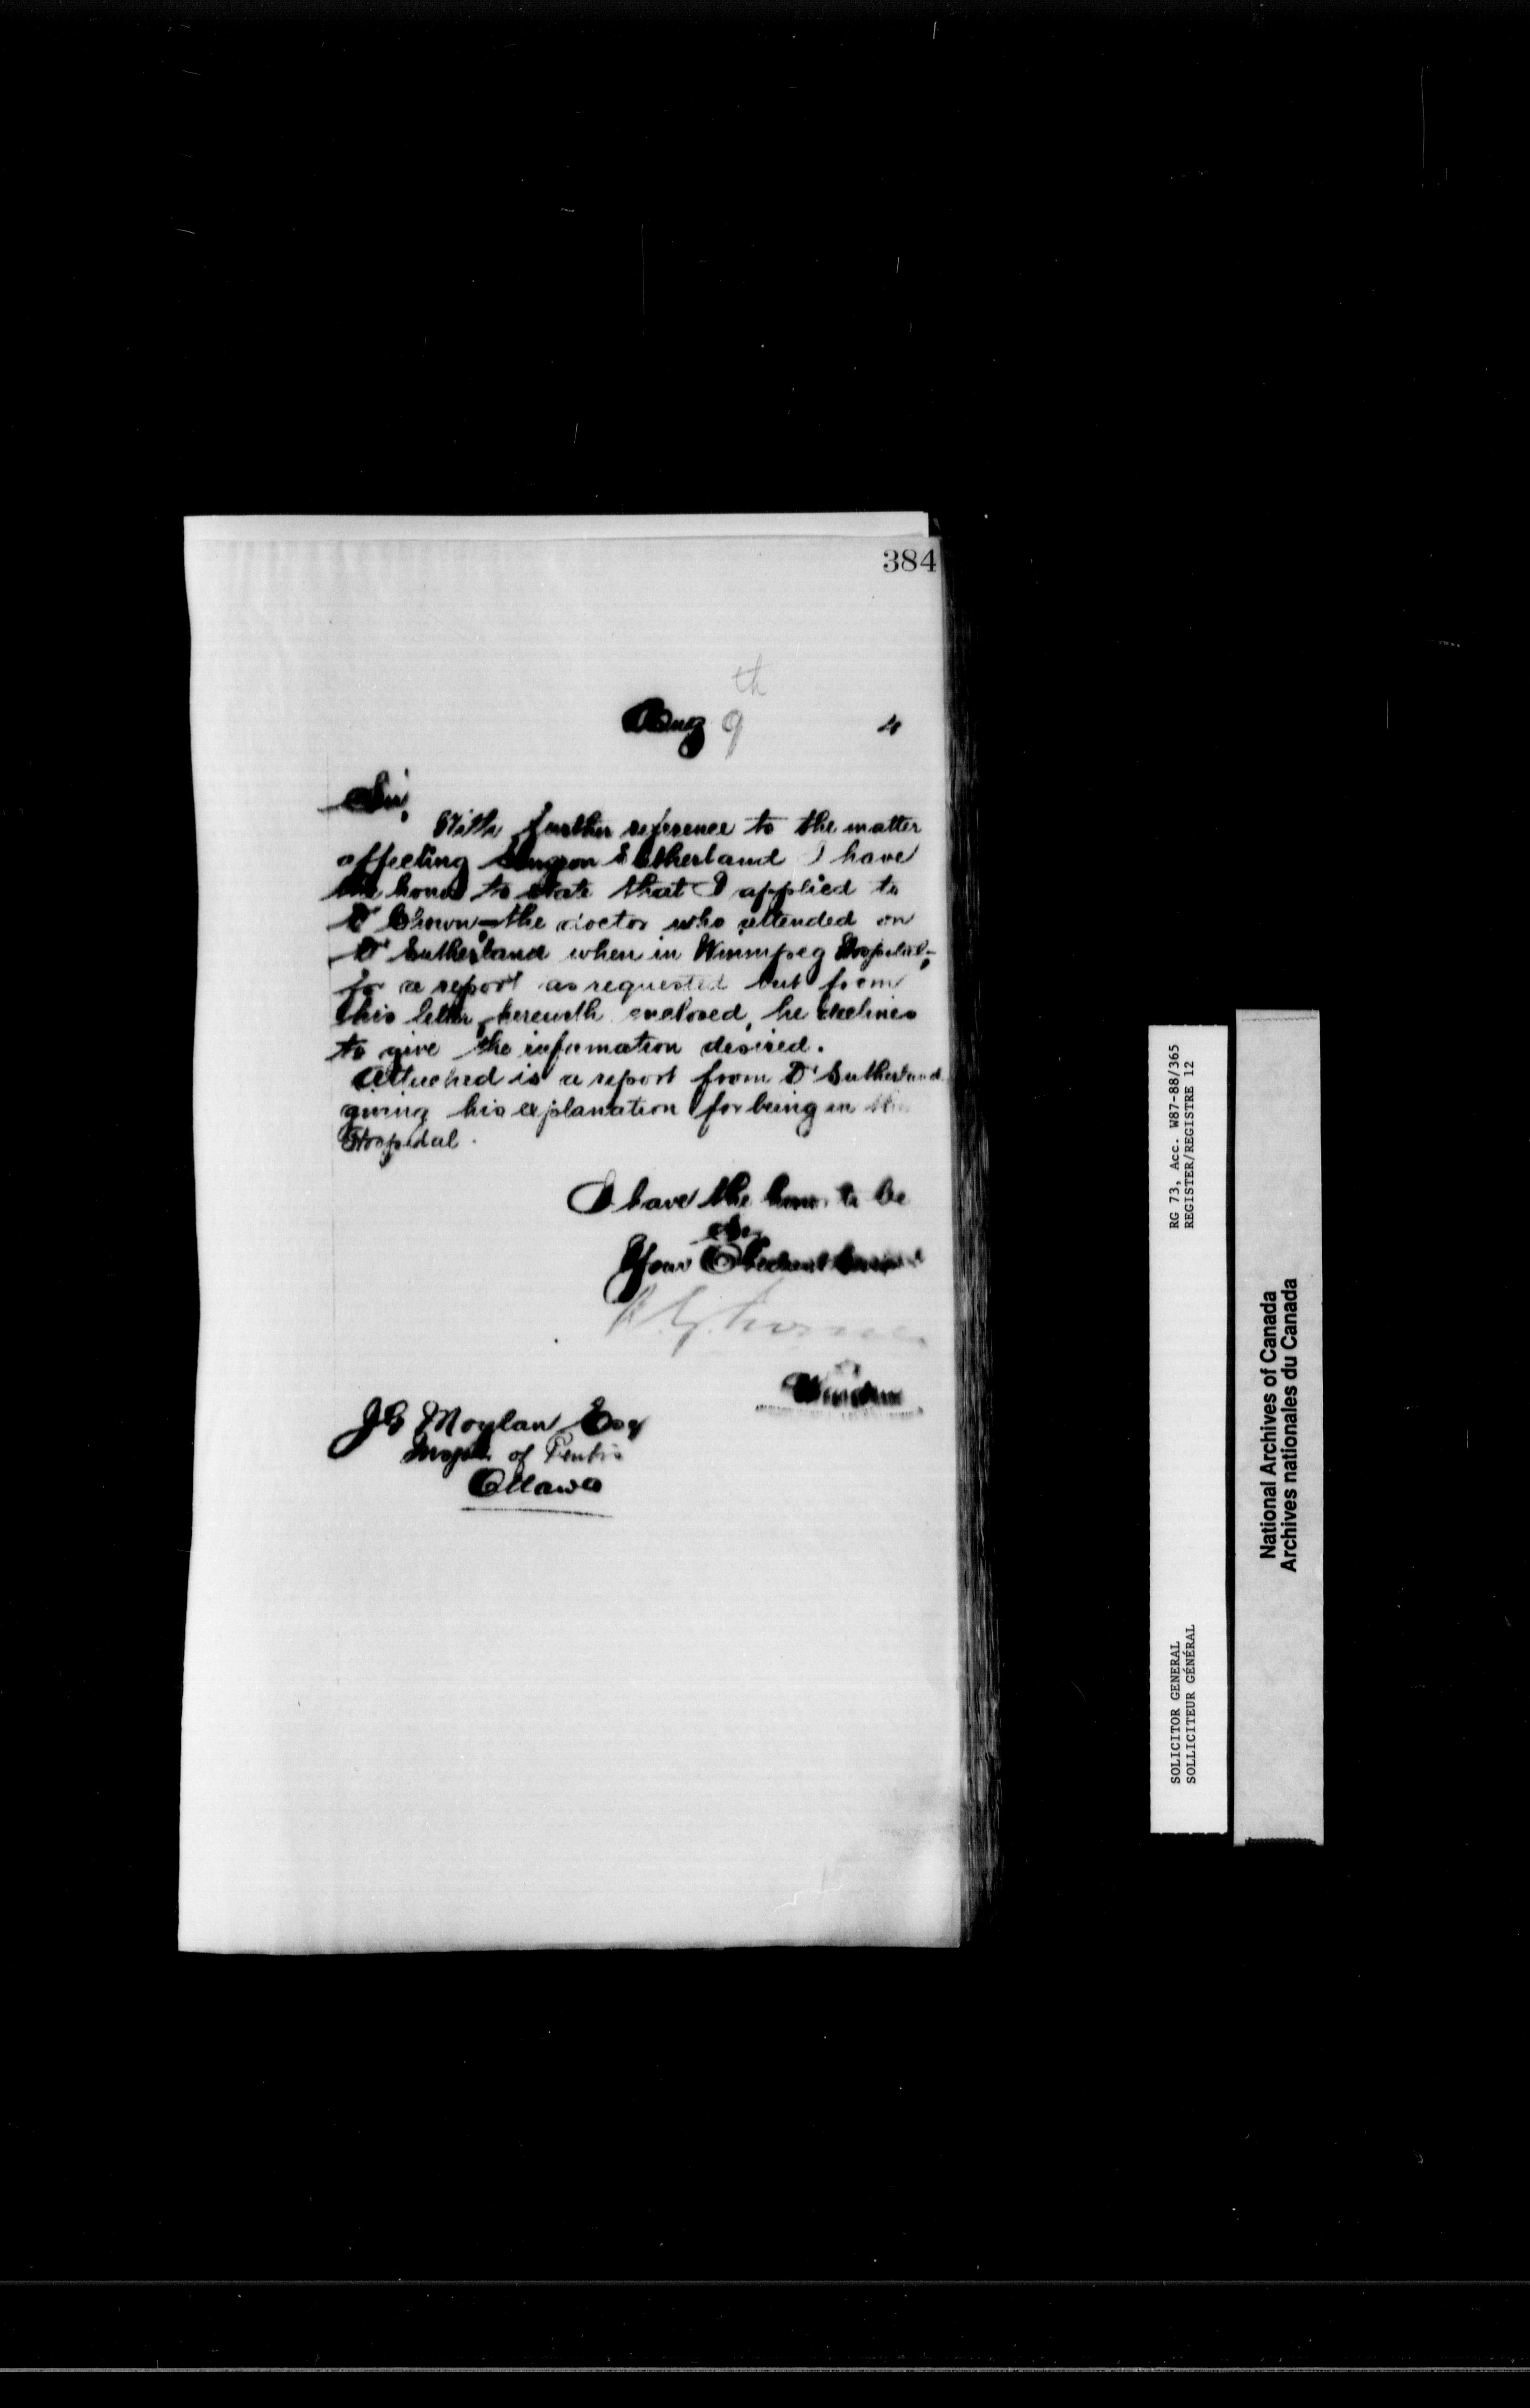 384
Aug 9th 4
Sir,
With further reference to the matter
affecting Surgeon Sutherland I have
the honor to state that I applied to
Dr Chown - the doctor who attended on
Dr Sutherland when in Winnipeg Hospital -
for a report as requested but from
his letter, herewith enclosed, he declines
to give the information desired.
Attached is a report from Dr Sutherland
giving his explanation for being in the
Hospital.
I have the honor to be
Sir
Your Obedient Servant
Warden
J G Moylan Esq
Inspr. of Pentrs
Ottawa
RG 73, Acc. W87-88/365
REGISTER/REGISTRE 12
SOLICITOR GENERAL
SOLLICITEUR GÉNÉRAL
National Archives of Canada
Archives nationales du Canada